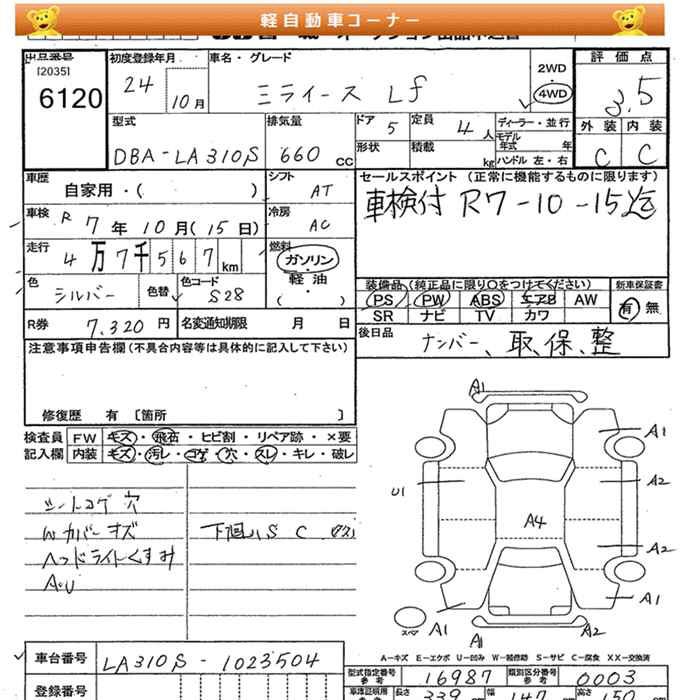 軽自動車コーナー
出品番号 初度登録年月 車名・グレード 2WD 評価点
[2035] 24 ミライース Lf 4WD 3.5
6120 10月
外装 内装
型式 排気量 ドア 5 定員 4人 ディーラー・並行 C C
DBA-LA310S 660cc 形状 積載 kg モデル年式 年 ハンドル 左・右
車歴 シフト セールスポイント (正常に機能するものに限ります)
自家用・( ) AT 車検付 R7-10-15迄
車検 R 7年10月(15日) 冷房 AC
走行 4万7千567km 燃料 ガソリン・軽油・( )
色 シルバー 色替 色コード S28 装備品(純正品に限り〇をつけてください) 新車保証書
PS PW ABS エアB AW 有 無
SR ナビ TV カワ
R券 7,320円 名変通知期限 月 日 後日品 ナンバー、取、保、整
注意事項申告欄(不具合内容等は具体的に記入して下さい)
修復歴 有 〔箇所 〕
検査員 FW キズ・飛石・ヒビ割・リペア跡・×要
記入欄 内装 キズ・汚レ・コゲ・穴・スレ・キレ・破レ
シートコゲ 穴
Wカバーキズ 下廻りS C
ヘッドライトくすみ
A・U
A1
A1
U1 A2
A4
A2
A1
スペア A1 A1 A2
A-キズ E-エクボ U-凹み W-補修跡 S-サビ C-腐食 XX-交換済
車台番号 LA310S-1023504 型式指定番号 参考 16987 類別区分番号 参考 0003
登録番号 長さ 339 幅 147 高さ 150